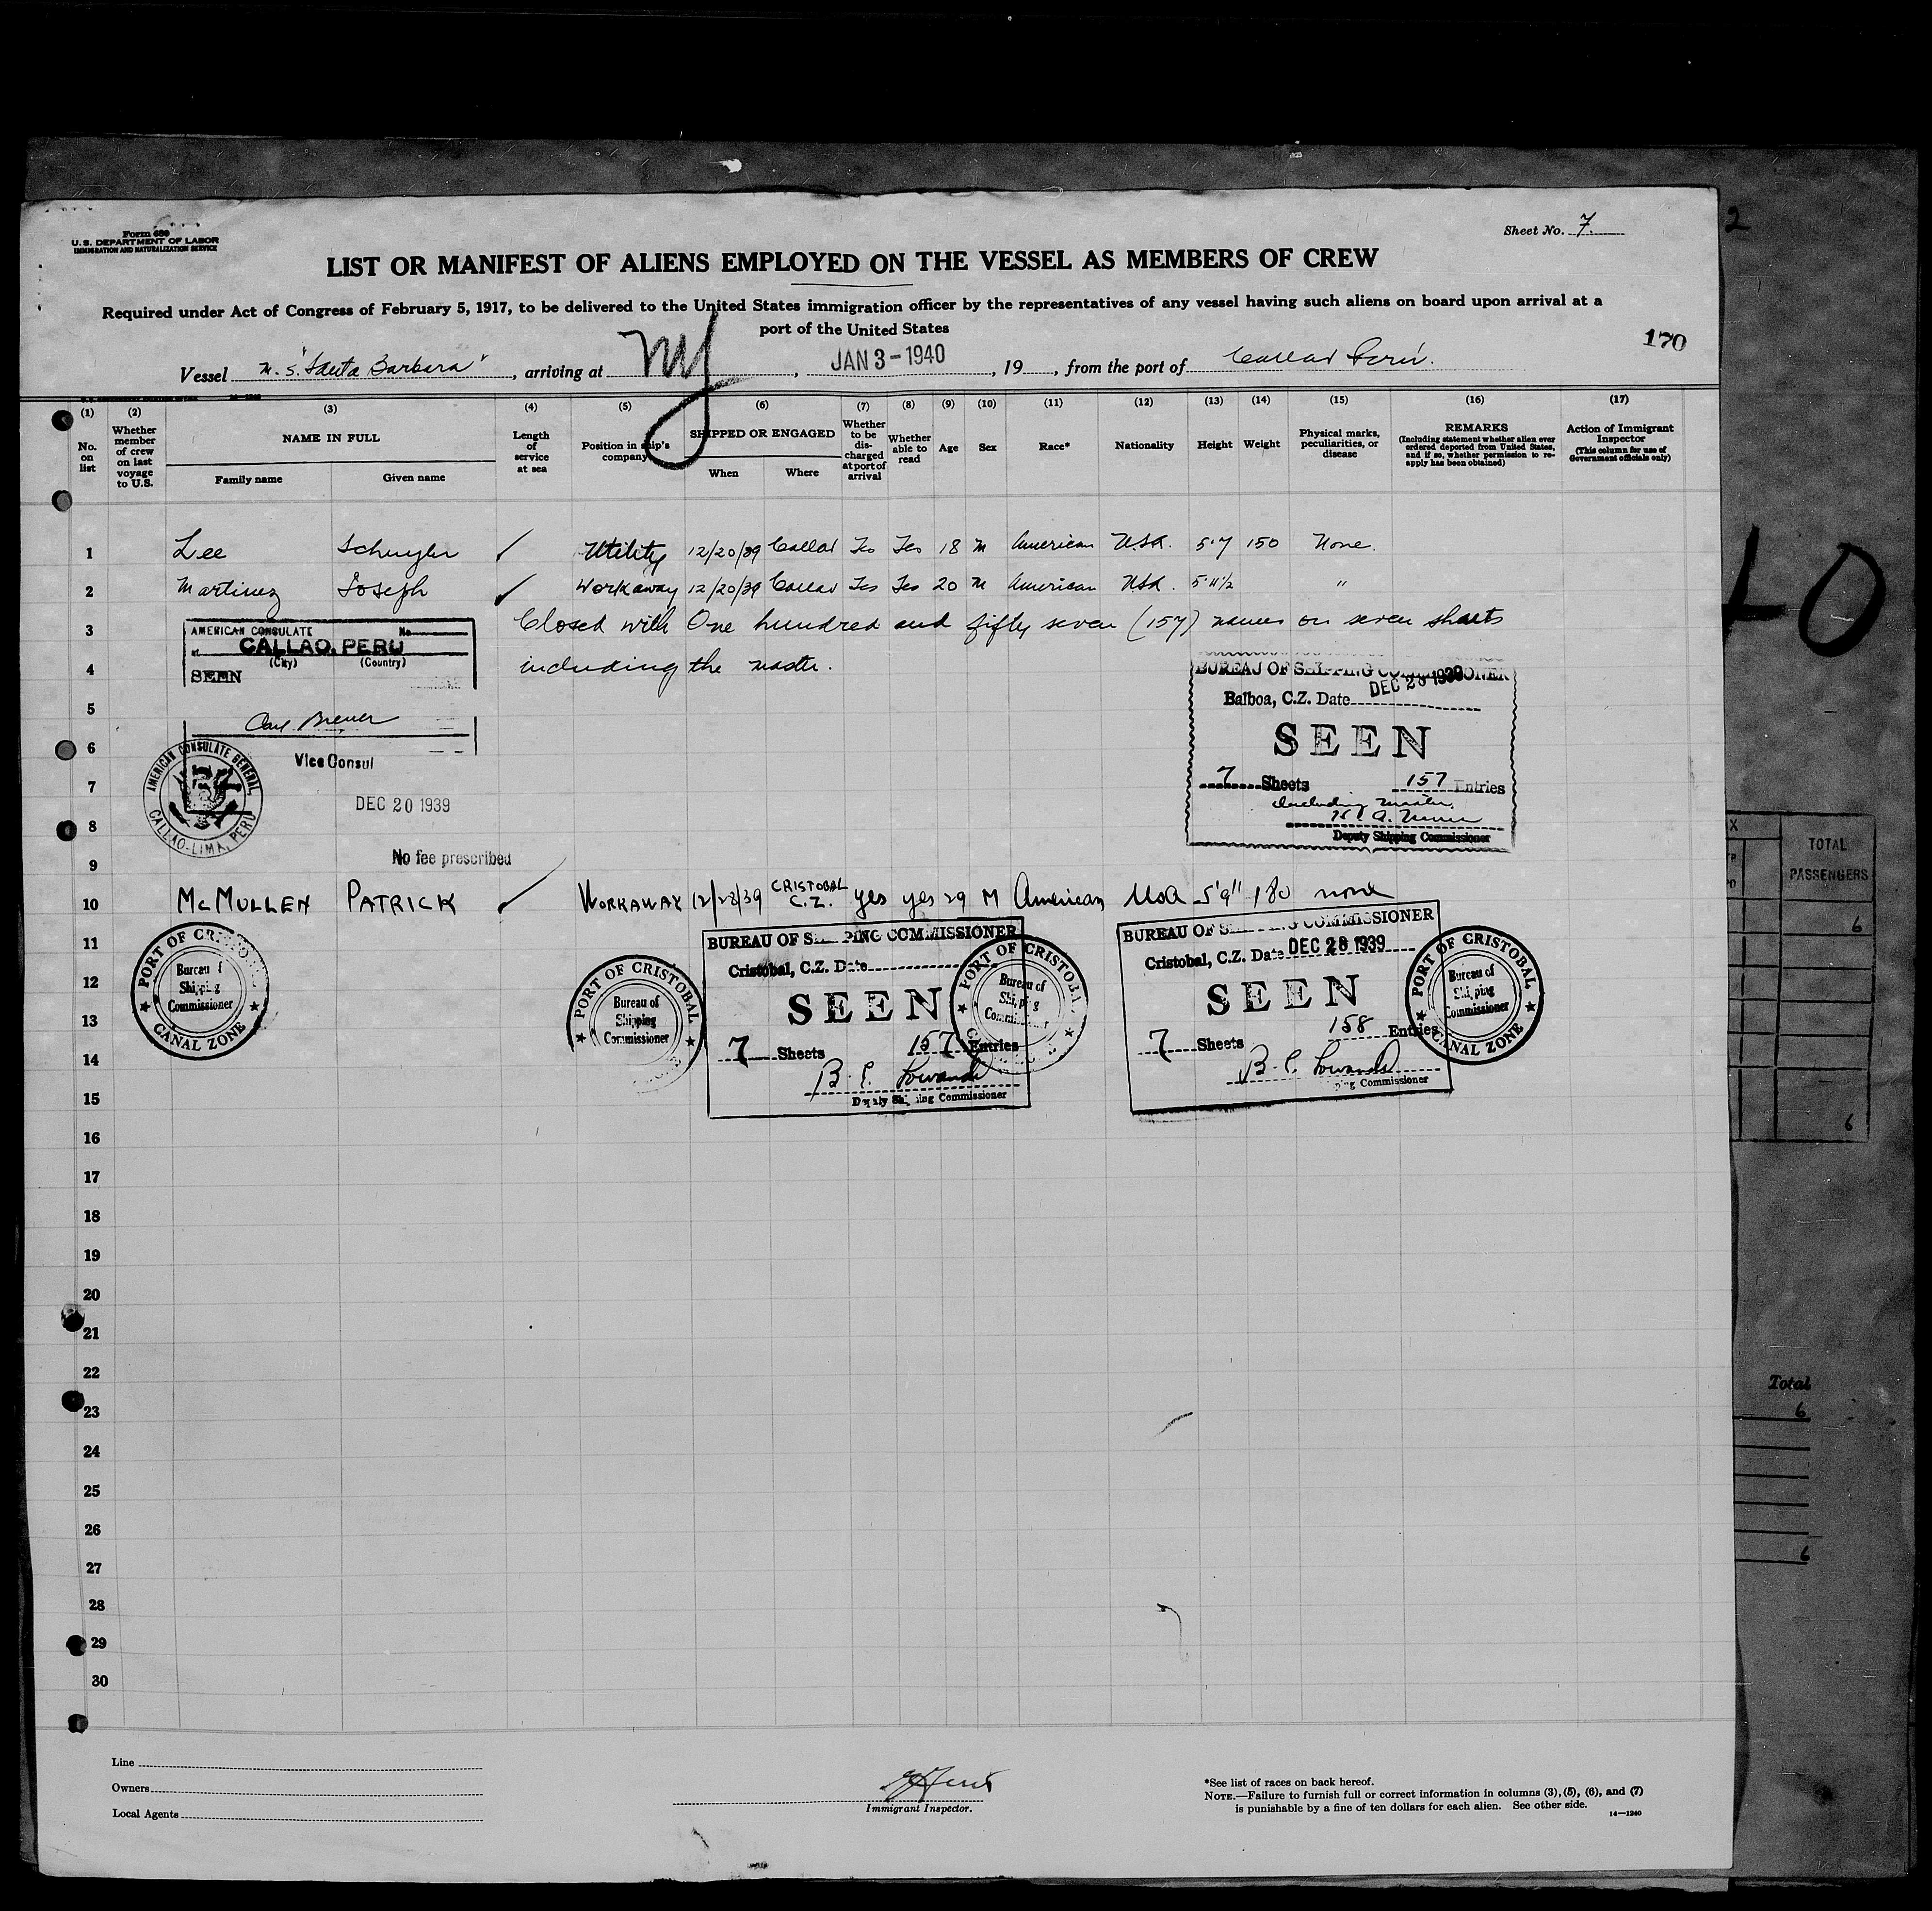 Form 689
U.S. DEPARTMENT OF LABOR
IMMIGRATION AND NATURALIZATION SERVICE
Sheet No. 7
2
LIST OR MANIFEST OF ALIENS EMPLOYED ON THE VESSEL AS MEMBERS OF CREW
Required under Act of Congress of February 5, 1917, to be delivered to the United States immigration officer by the representatives of any vessel having such aliens on board upon arrival at a
port of the United States
170
Vessel M.S. "Santa Barbara", arriving at NY, JAN 3 - 1940, 19, from the port of Callao Perú.
(1) (2) (3) (4) (5) (6) (7) (8) (9) (10) (11) (12) (13) (14) (15) (16) (17)
No. on list
Whether member of crew on last voyage to U.S.
NAME IN FULL
Family name
Given name
Length of service at sea
Position in ship's company
SHIPPED OR ENGAGED
When
Where
Whether to be discharged at port of arrival
Whether able to read
Age
Sex
Race*
Nationality
Height
Weight
Physical marks, peculiarities, or disease
REMARKS
(Including statement whether alien ever ordered deported from United States, and if so, whether permission to reapply has been obtained)
Action of Immigrant Inspector
(This column for use of Government officials only)
1 Lee Schuyler Utility 12/20/39 Callao Yes Yes 18 M American U.S.A. 5'7 150 None.
2 Martinez Joseph Workaway 12/20/39 Callao Yes Yes 20 M American USA. 5'11 1/2 "
3 Closed with One hundred and fifty seven (157) names on seven sheets
4 including the master.
AMERICAN CONSULATE No.
at CALLAO, PERU
(City) (Country)
SEEN
Vice Consul
AMERICAN CONSULATE GENERAL,
CALLAO-LIMA, PERU
DEC 20 1939
No fee prescribed
BUREAU OF SHIPPING COMMISSIONER
Balboa, C.Z. Date DEC 28 1939
SEEN
7 Sheets 157 Entries
including master.
Deputy Shipping Commissioner
5
6
7
8
9
10 McMULLEN PATRICK WORKAWAY 12/28/39 CRISTOBAL C.Z. yes yes 29 M American USA 5'9" 180 none
PORT OF CRISTOBAL
Bureau of
Shipping
Commissioner
CANAL ZONE
PORT OF CRISTOBAL
Bureau of
Shipping
Commissioner
BUREAU OF SHIPPING COMMISSIONER
Cristobal, C.Z. Date
SEEN
7 Sheets 157 Entries
Deputy Shipping Commissioner
PORT OF CRISTOBAL
Bureau of
Shipping
Commissioner
BUREAU OF SHIPPING COMMISSIONER
Cristobal, C.Z. Date DEC 28 1939
SEEN
7 Sheets 158 Entries
Shipping Commissioner
PORT OF CRISTOBAL
Bureau of
Shipping
Commissioner
CANAL ZONE
11
12
13
14
15
16
17
18
19
20
21
22
23
24
25
26
27
28
29
30
Line
Owners
Local Agents
Immigrant Inspector.
*See list of races on back hereof.
NOTE.—Failure to furnish full or correct information in columns (3), (5), (6), and (7)
is punishable by a fine of ten dollars for each alien. See other side.
14—1240
40
TOTAL
PASSENGERS
6
6
Total
6
6